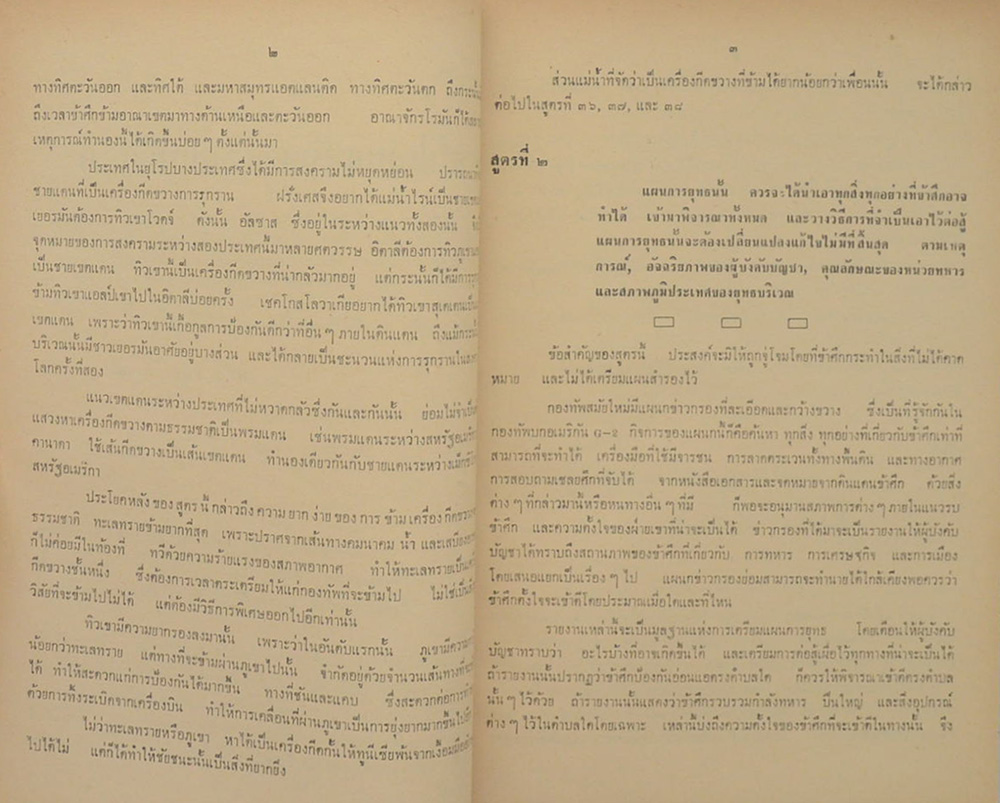 ๒
ทางทิศตะวันออก และทิศใต้ และมหาสมุทรแอตแลนติค ทางทิศตะวันตก ถึงกระนั้น
ถึงเวลาข้าศึกข้ามอาณาเขตมาทางด้านเหนือและตะวันออก อาณาจักรโรมันก็ได้
เหตุการณ์ทำนองนี้ได้เกิดขึ้นบ่อย ๆ ตั้งแต่นั้นมา
ประเทศในยุโรปบางประเทศซึ่งได้มีการสงครามไม่หยุดหย่อน
ชายแดนที่เป็นเครื่องกีดขวางการรุกราน ฝรั่งเศสจึงอยากได้แม่น้ำไรน์เป็นชาย
เยอรมันต้องการทิวเขาโวตจ์ ดังนั้น อัลซาส ซึ่งอยู่ในระหว่างแนวทั้งสองนั้น
จุดหมายของการสงครามระหว่างสองประเทศนี้มาหลายศตวรรษ อิตาลีต้องการทิวภูเขา
เป็นชายเขตแดน ทิวเขานี้เป็นเครื่องกีดขวางที่น่ากลัวมากอยู่ แต่กระนั้นก็ได้มีการ
ข้ามทิวเขาแอลป์เข้าไปในอิตาลีบ่อยครั้ง เชคโกสโลวาเกียอยากได้ทิวเขาสุเดเตน
เขตแดน เพราะว่าทิวเขานี้เกื้อกูลการป้องกันดีกว่าที่อื่น ๆ ภายในดินแดน ถึงแม้
บริเวณนั้นมีชาวเยอรมันอาศัยอยู่บางส่วน และได้กลายเป็นชะนวนแห่งการรุกรานใน
โลกครั้งที่สอง
แนวเขตแดนระหว่างประเทศที่ไม่หวาดกลัวซึ่งกันและกันนั้น ย่อมไม่จำเป็น
แสวงหาเครื่องกีดขวางตามธรรมชาติเป็นพรมแดน เช่นพรมแดนระหว่างสหรัฐอเมริกา
คานาดา ใช้เส้นกีดขวางเป็นเส้นเขตแดน ทำนองเดียวกันกับชายแดนระหว่าง
สหรัฐอเมริกา
ประโยคหลังของสูตรนี้ กล่าวถึงความยากง่ายของการข้ามเครื่องกีด
ธรรมชาติ ทะเลทรายข้ามยากที่สุด เพราะปราศจากเส้นทางคมนาคม น้ำ และเสบียง
ก็ไม่ค่อยมีในท้องที่ ทวีด้วยความร้ายแรงของสภาพอากาศ ทำให้ทะเลทรายเป็น
กีดขวางชั้นหนึ่ง ซึ่งต้องการเวลาตระเตรียมให้แก่กองทัพที่จะข้ามไป ไม่ใช่
วิสัยที่จะข้ามไปไม่ได้ แต่ต้องมีวิธีการพิเศษออกไปอีกเท่านั้น
ทิวเขามีความยากรองลงมานั้น เพราะว่าในอันดับแรกนั้น ภูเขามีความ
น้อยกว่าทะเลทราย แต่ทางที่จะข้ามผ่านภูเขาไปนั้น จำกัดอยู่ด้วยจำนวนเส้นทาง
ได้ ทำให้สะดวกแก่การป้องกันได้มากขึ้น ทางที่ชันและแคบ ซึ่งสะดวกต่อการ
ด้วยการทิ้งระเบิดจากเครื่องบิน ทำให้การเคลื่อนที่ผ่านภูเขาเป็นการยุ่งยากมากขึ้น
ไม่ว่าทะเลทรายหรือภูเขา หาได้เป็นเครื่องกีดกั้นให้ทูนีเซียพ้นจากเงื้อมมือ
ไปได้ไม่ แต่ก็ได้ทำให้ชัยชนะนั้นเป็นสิ่งที่ยากยิ่ง
๓
ส่วนแม่น้ำที่จัดว่าเป็นเครื่องกีดขวางที่ข้ามได้ยากน้อยกว่าเพื่อนนั้น จะได้กล่าว
ต่อไปในสูตรที่ ๓๖, ๓๗, และ ๓๘
สูตรที่ ๒
แผนการยุทธนั้น ควรจะได้นำเอาทุกสิ่งทุกอย่างที่ข้าศึกอาจ
ทำได้ เข้ามาพิจารณาทั้งหมด และวางวิธีการที่จำเป็นเอาไว้ต่อสู้
แผนการยุทธนั้นจะต้องเปลี่ยนแปลงแก้ไขไม่มีที่สิ้นสุด ตามเหตุ
การณ์, อัจฉริยภาพของผู้บังคับบัญชา, คุณลักษณะของหน่วยทหาร
และสภาพภูมิประเทศของยุทธบริเวณ
ข้อสำคัญของสูตรนี้ ประสงค์จะมิให้ถูกจู่โจมโดยที่ข้าศึกกระทำในสิ่งที่ไม่ได้คาด
หมาย และไม่ได้เตรียมแผนสำรองไว้
กองทัพสมัยใหม่มีแผนกข่าวกรองที่ละเอียดและกว้างขวาง ซึ่งเป็นที่รู้จักกันใน
กองทัพบกอเมริกัน G-2 กิจการของแผนกนี้ก็คือค้นหา ทุกสิ่ง ทุกอย่างที่เกี่ยวกับข้าศึกเท่าที่
สามารถที่จะทำได้ เครื่องมือที่ใช้มีจารชน การลาดตระเวนทั้งทางพื้นดิน และทางอากาศ
การสอบถามเชลยศึกที่จับได้ จากหนังสือเอกสารและจดหมายจากดินแดนข้าศึก ด้วยสิ่ง
ต่าง ๆ ที่กล่าวมานี้หรือหนทางอื่น ๆ ที่มี ก็พอจะอนุมานสภาพการต่าง ๆ ภายในแนวรบ
ข้าศึก และความตั้งใจของฝ่ายเขาที่น่าจะเป็นได้ ข่าวกรองที่ได้มาจะเป็นรายงานให้ผู้บังคับ
บัญชาได้ทราบถึงสถานภาพของข้าศึกที่เกี่ยวกับ การทหาร การเศรษฐกิจ และการเมือง
โดยเสนอแยกเป็นเรื่อง ๆ ไป แผนกข่าวกรองย่อมสามารถจะทำนายได้ใกล้เคียงพอควรว่า
ข้าศึกตั้งใจจะเข้าตีโดยประมาณเมื่อใดและที่ไหน
รายงานเหล่านี้จะเป็นมูลฐานแห่งการเตรียมแผนการยุทธ โดยเตือนให้ผู้บังคับ
บัญชาทราบว่า อะไรบ้างที่อาจเกิดขึ้นได้ และเตรียมการต่อสู้เผื่อไว้ทุกทางที่น่าจะเป็นได้
ถ้ารายงานนั้นปรากฏว่าข้าศึกป้องกันอ่อนแอตรงตำบลใด ก็ควรให้พิจารณาเข้าตีตรงตำบล
นั้น ๆ ไว้ด้วย ถ้ารายงานนั้นแสดงว่าข้าศึกรวบรวมกำลังทหาร ปืนใหญ่ และสิ่งอุปกรณ์
ต่าง ๆ ไว้ในตำบลใดโดยเฉพาะ เหล่านี้บ่งถึงความตั้งใจของข้าศึกที่จะเข้าตีในทางนั้น จึง